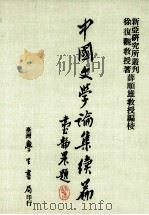 新亞研究所叢刊
徐復觀教授著 薛順雄教授編校
中國文學論集續篇
臺靜農題
臺灣學生書局印行